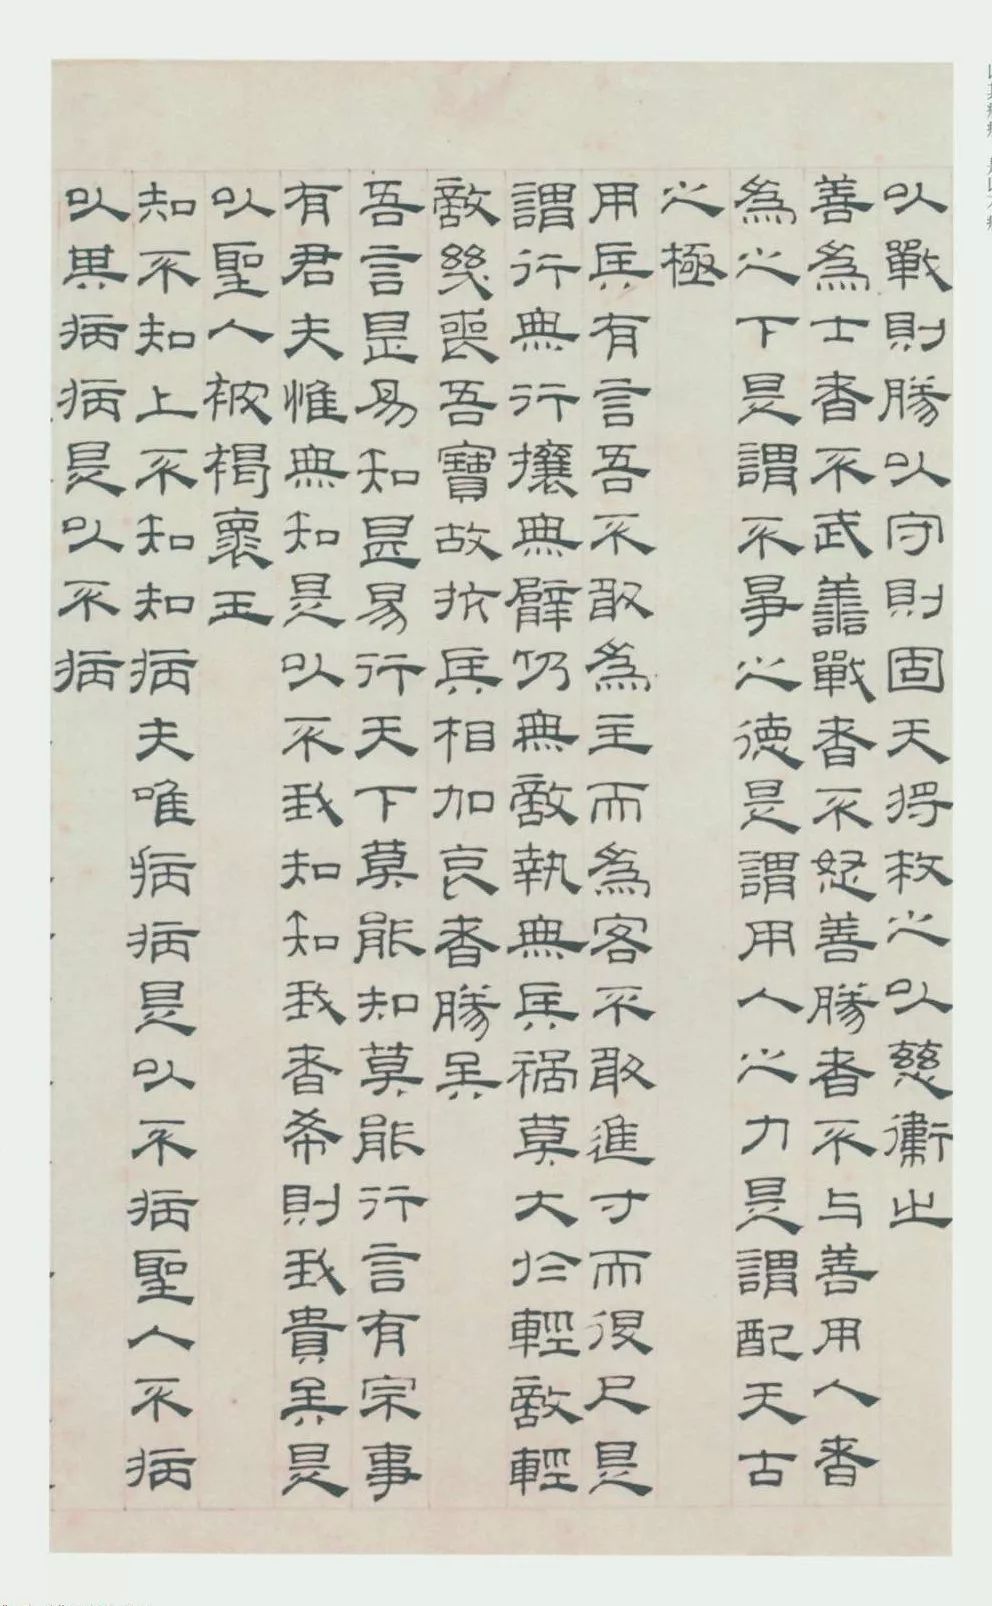 以戰則勝以守則固天將救之以慈衞之
善為士者不武善戰者不怒善勝者不与善用人者
為之下是謂不爭之德是謂用人之力是謂配天古
之極
用兵有言吾不敢為主而為客不敢進寸而退尺是
謂行無行攘無臂仍無敵執無兵禍莫大於輕敵輕
敵幾喪吾寶故抗兵相加哀者勝矣
吾言甚易知甚易行天下莫能知莫能行言有宗事
有君夫惟無知是以不我知知我者希則我貴矣是
以聖人被褐褱玉
知不知上不知知病夫唯病病是以不病聖人不病
以其病病是以不病